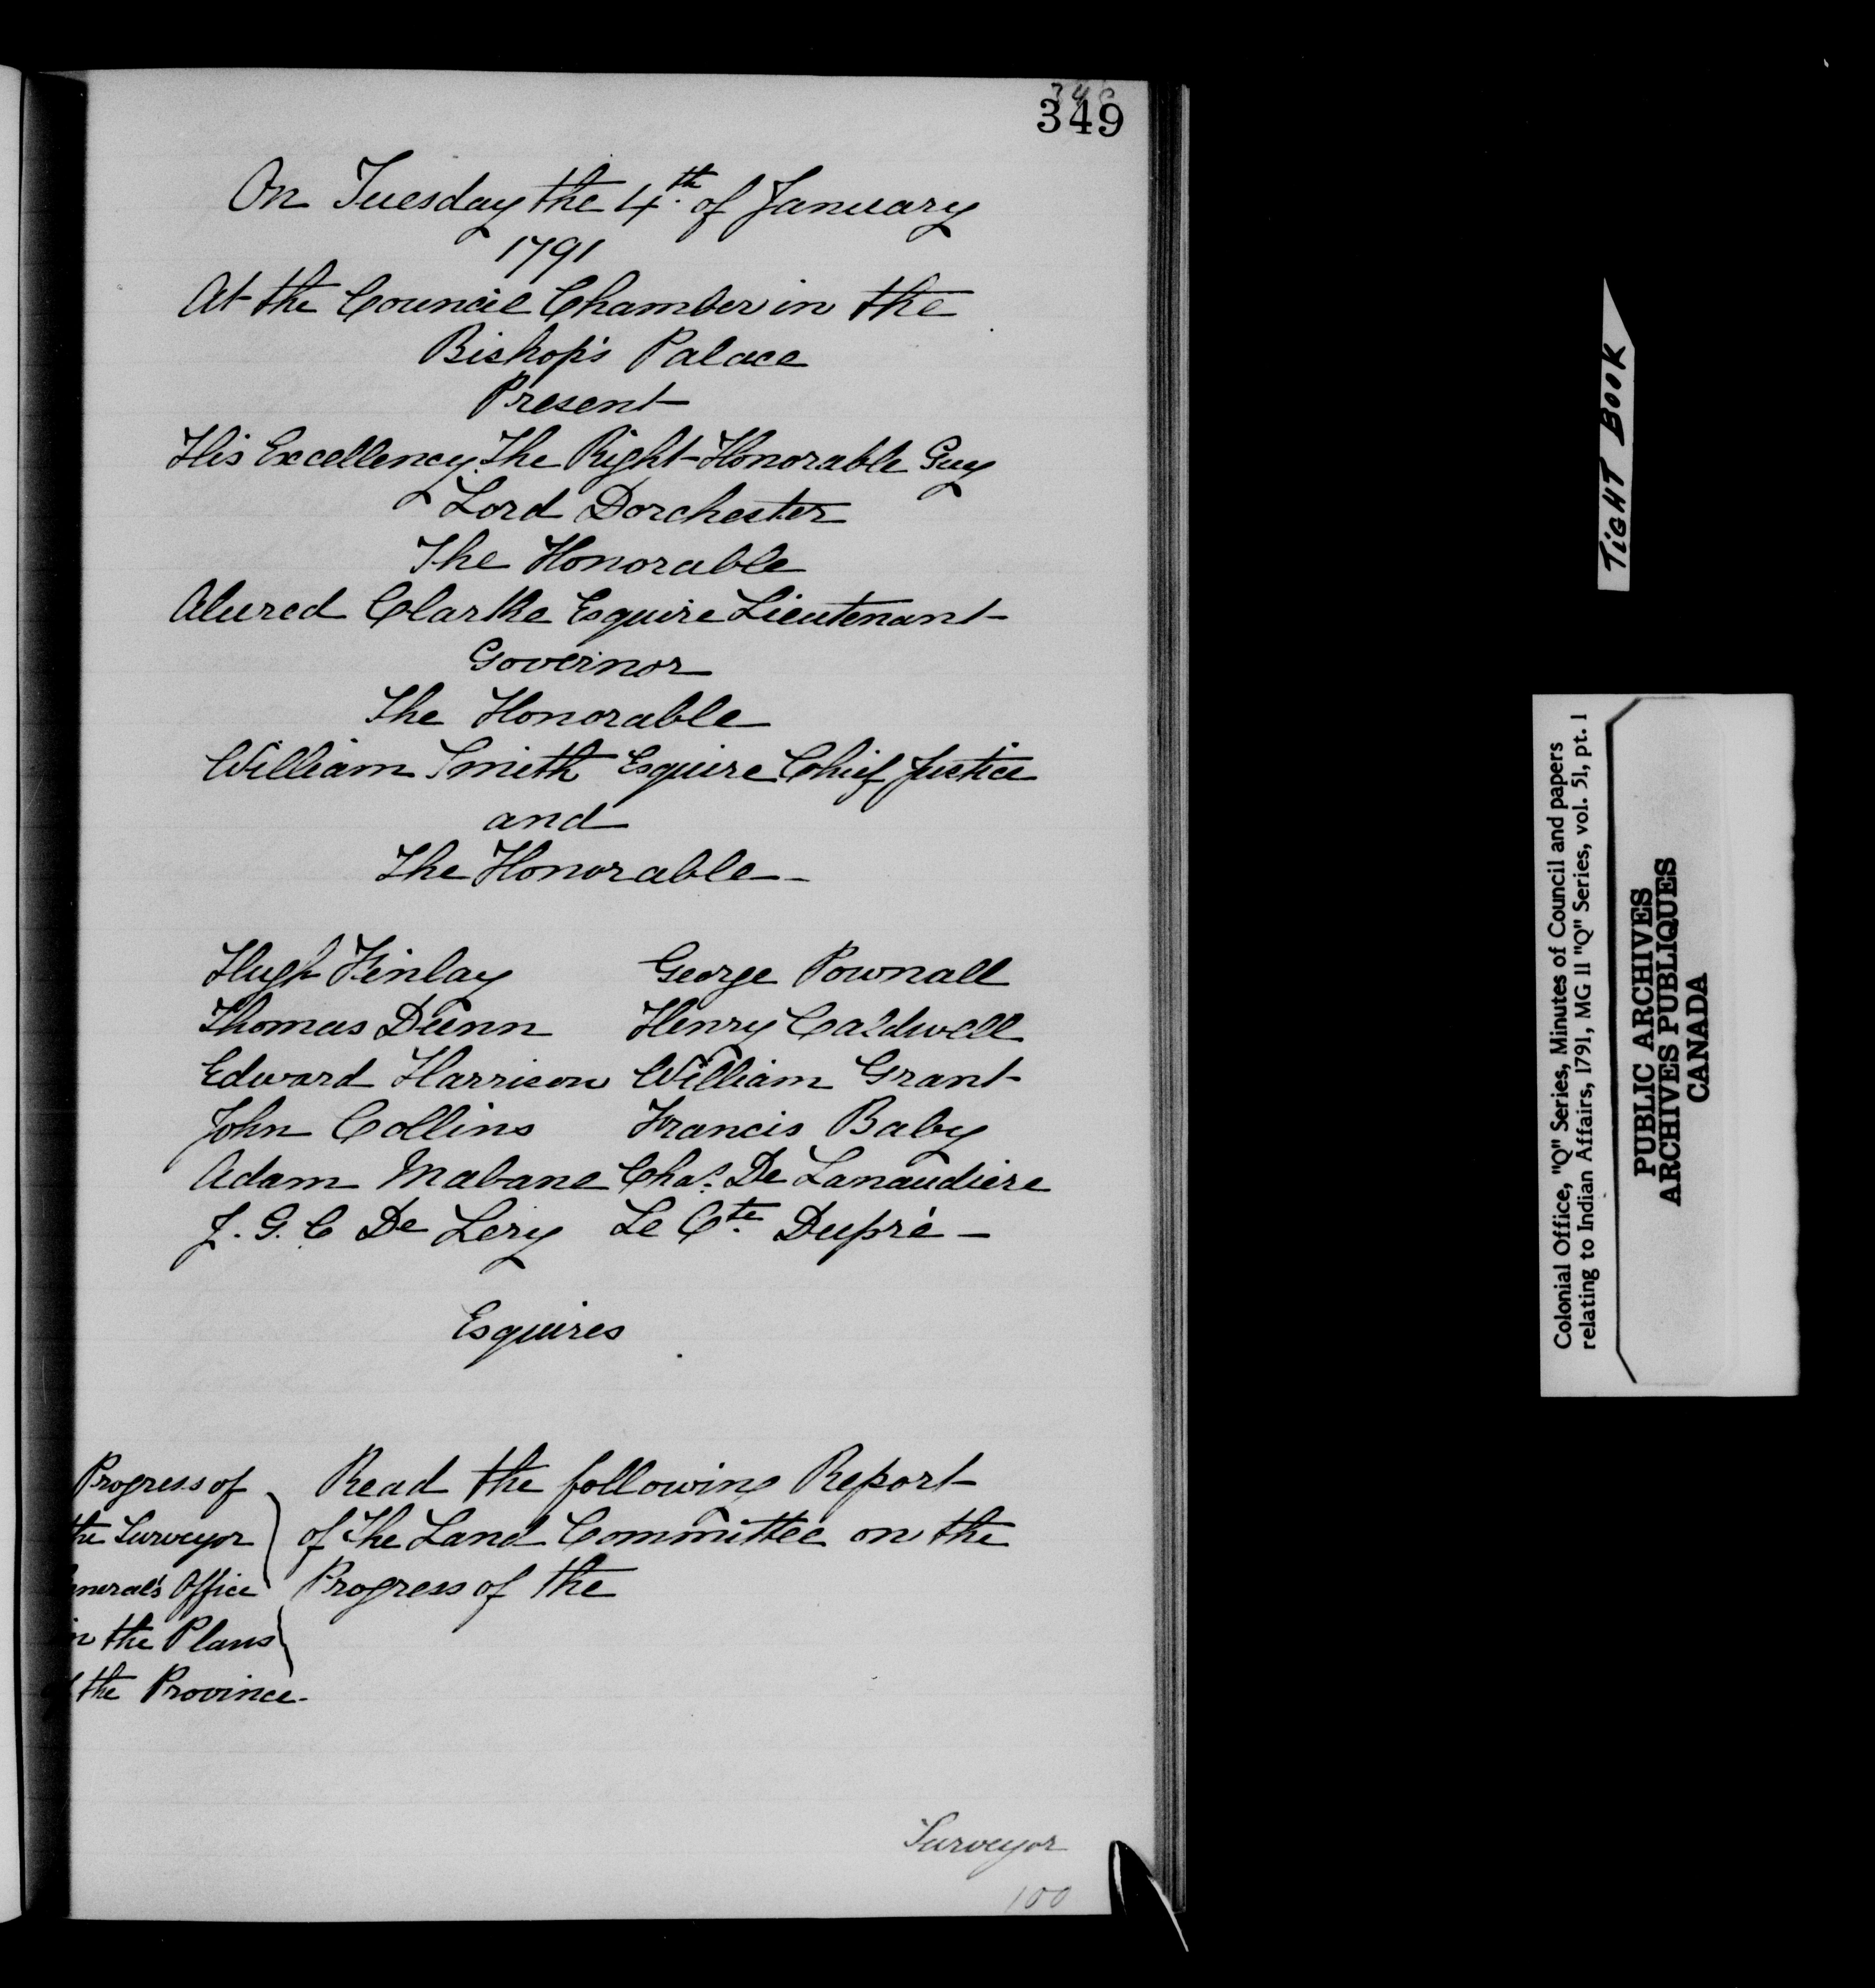 349
On Tuesday the 4th. of January
1791
At the Council Chamber in the
Bishop's Palace
Present
His Excellency The Right Honorable Guy
Lord Dorchester
The Honorable
Alured Clarke Esquire Lieutenant
Governor
The Honorable
William Smith Esquire Chief Justice
and
The Honorable
Hugh Finlay George Pownall
Thomas Dunn Henry Caldwell
Edward Harrison William Grant
John Collins Francis Baby
Adam Mabane Chas. De Lanaudiere
J. G. C De Lery Le Cte. Dupré
Esquires
Progress of
the Surveyor
eneral's Office
in the Plans
of the Province.
Read the following Report
of The Land Committee on the
Progress of the
Surveyor
100
TIGHT BOOK
Colonial Office, "Q" Series, Minutes of Council and papers
relating to Indian Affairs, 1791, MG 11 "Q" Series, vol. 51, pt. 1
PUBLIC ARCHIVES
ARCHIVES PUBLIQUES
CANADA